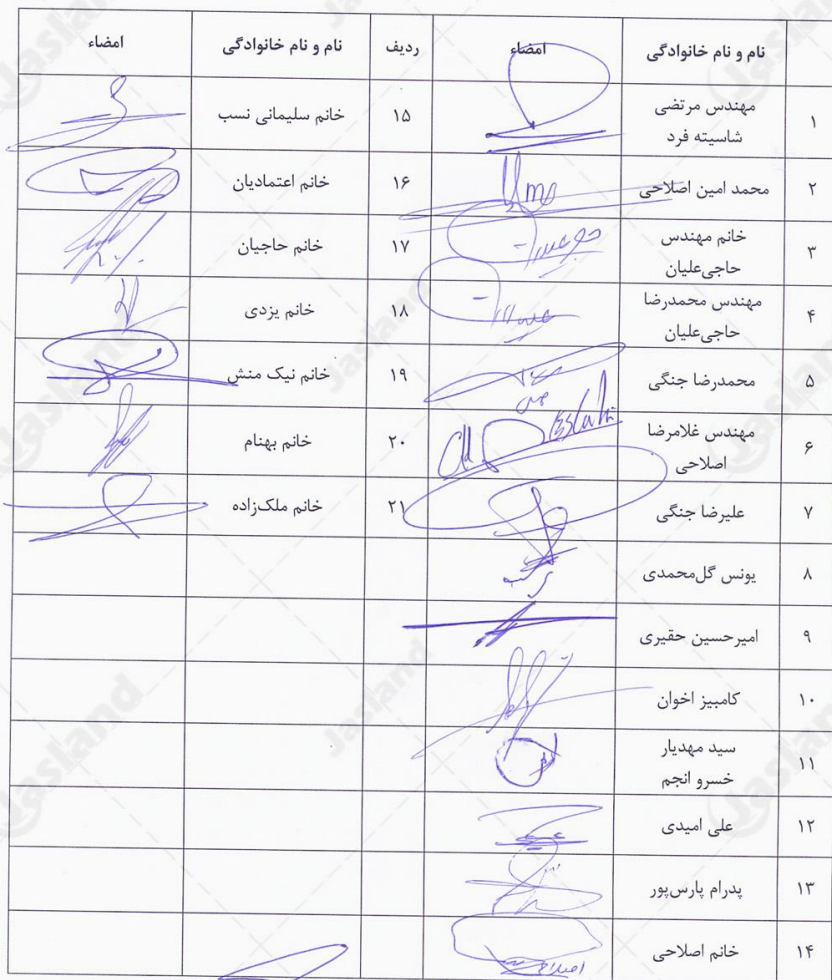 نام و نام خانوادگی امضاء ردیف نام و نام خانوادگی امضاء
۱ مهندس مرتضی
شاسیته فرد
۱۵ خانم سلیمانی نسب
۲ محمد امین اصلاحی
۱۶ خانم اعتمادیان
۳ خانم مهندس
حاجی‌علیان
۱۷ خانم حاجیان
۴ مهندس محمدرضا
حاجی‌علیان
۱۸ خانم یزدی
۵ محمدرضا جنگی
۱۹ خانم نیک منش
۶ مهندس غلامرضا
اصلاحی
۲۰ خانم بهنام
۷ علیرضا جنگی
۲۱ خانم ملک‌زاده
۸ یونس گل‌محمدی
۹ امیرحسین حقیری
۱۰ کامبیز اخوان
۱۱ سید مهدیار
خسرو انجم
۱۲ علی امیدی
۱۳ پدرام پارس‌پور
۱۴ خانم اصلاحی
Jasland